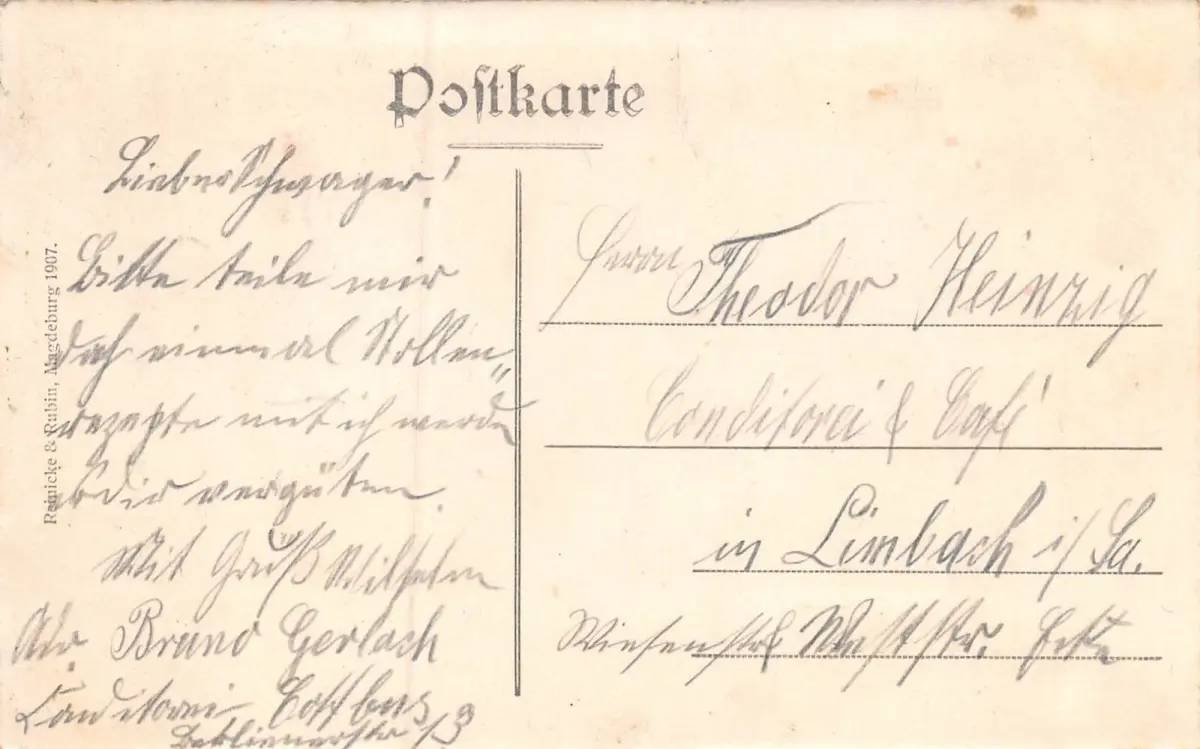 Postkarte
Lieber Schwager!
Bitte teile mir
doch einmal Stollen„
rezepte mit ich werde
es dir vergüten.
Mit Gruß Wilhelm
Adr. Bruno Gerlach
Conditorei Cottbus
Berlinerstr
Herrn Theodor Heinzig
Conditorei & Café
in Limbach i/Sa.
Wiesenstr & Weststr. Ecke
Reinicke & Rubin, Magdeburg 1907.